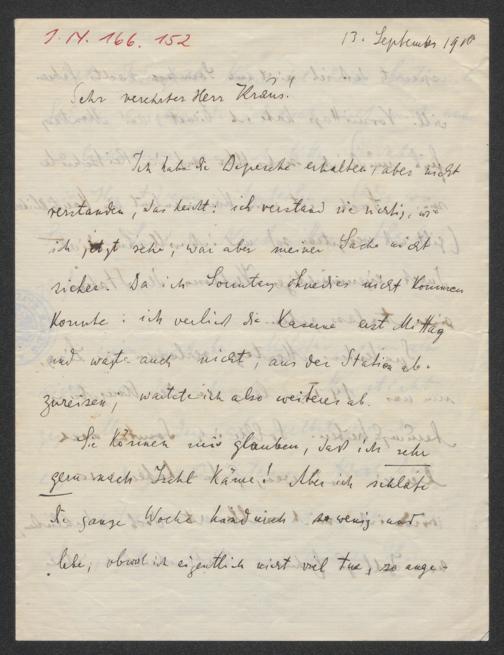 I. N. 166. 152
13. September 1910
Sehr verehrter Herr Kraus!
Ich habe die Depesche erhalten, aber nicht
verstanden, das heißt: ich verstand sie richtig, wie
ich jetzt sehe, war aber meiner Sache nicht
sicher. Da ich Sonntag ohnedies nicht kommen
konnte: ich verließ die Kaserne erst Mittag
und wagte auch nicht, aus der Station ab-
zureisen, wartete ich also weiteres ab.
Sie können mir glauben, daß ich sehr
gern nach Ischl käme! Aber ich schlafe
die ganze Woche hindurch so wenig und
lebe, obwohl ich eigentlich nicht viel tue, so ange-